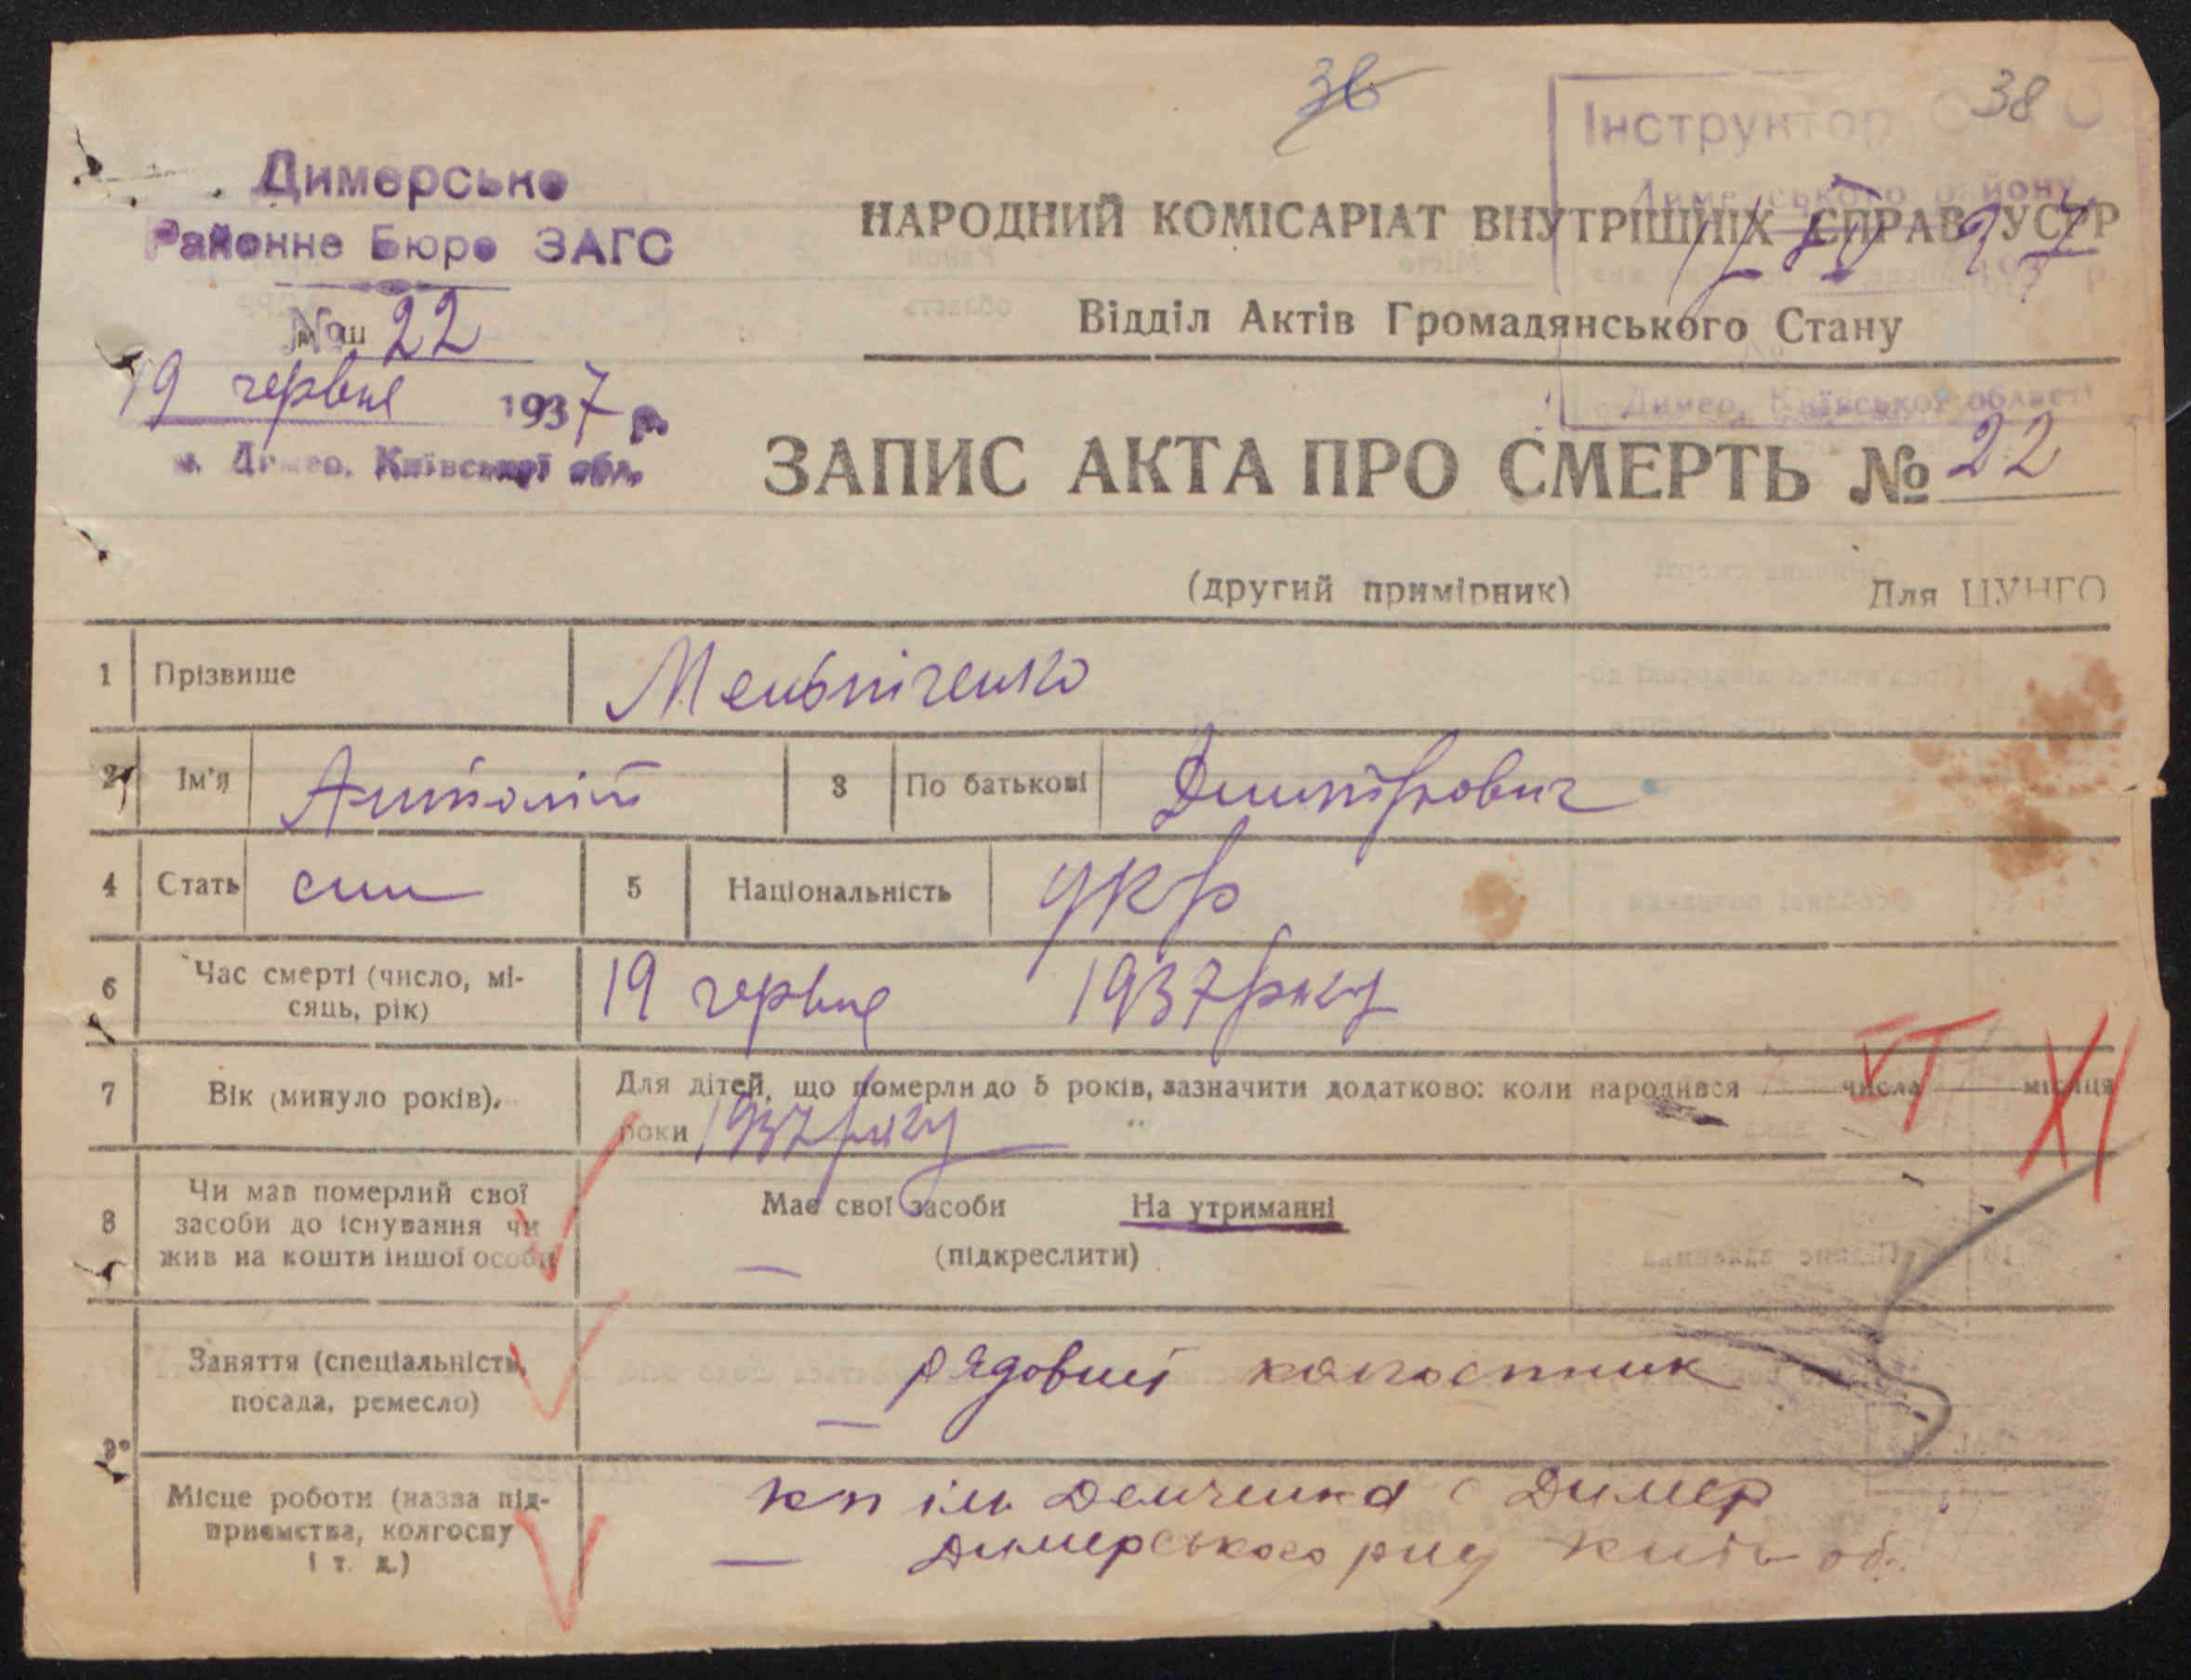 36
38
Інструктор
Димерського району
Димерське
Районне Бюро ЗАГС
НАРОДНИЙ КОМІСАРІАТ ВНУТРІШНІХ СПРАВ УСРР
№ 22
Відділ Актів Громадянського Стану
19 червня 1937 р.
м. Димер, Київської обл.
Димер, Київської області
ЗАПИС АКТА ПРО СМЕРТЬ № 22
(другий примірник) Для ЦУНГО
1 Прізвище Мельніченко
2 Ім'я Анатолій 3 По батькові Дмитрович
4 Стать син 5 Національність укр
6 Час смерті (число, мі-
сяць, рік) 19 червня 1937 року
7 Вік (минуло років). Для дітей, що померли до 5 років, зазначити додатково: коли народився числа місяця
роки 1937 року
VI XI
8 Чи мав померлий свої
засоби до існування чи
жив на кошти іншої особи
Має свої засоби На утриманні
(підкреслити)
9 Заняття (спеціальність,
посада, ремесло)
рядовий колгоспник
Місце роботи (назва під-
приємства, колгоспу
і т. д.)
кп ім Демченка с Димер
Димерського р-ну Київ обл.